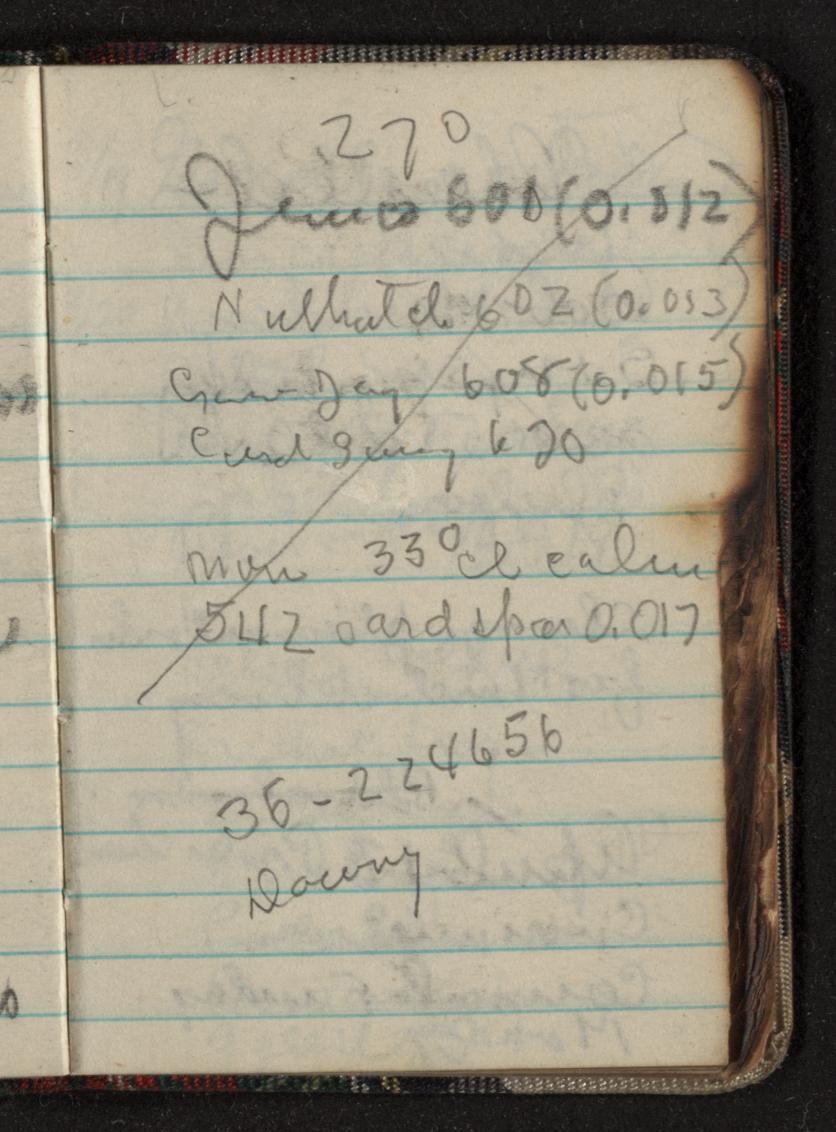 270
Junco 601 (0.012)
Nuthatch 602 (0.013)
Jay 608 (0.015)
Card 620
Mon 33° cl calm
542 card spar 0.017
36-224656
Downy